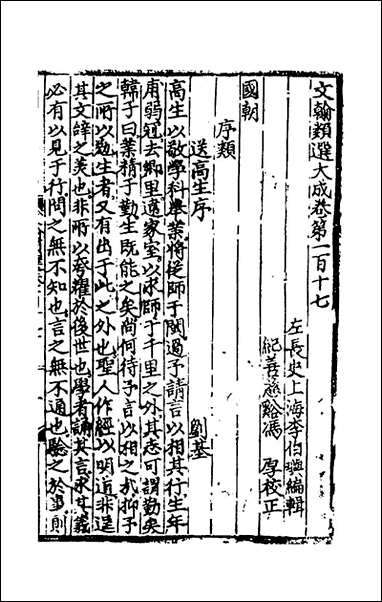 文翰類選大成卷第一百十七
左長史上海李伯璵編輯
紀善慈谿馮厚校正
國朝
序類
送高生序
劉基
高生以敬學科舉業將從師于閩過予請言以相其行生年
甫弱冠去鄉里遠家室以求師于千里之外其志可謂勤矣
韓子曰業精于勤生既能之矣尚何待予言以相之哉抑予
之所以勉生者又有出于此之外也聖人作經以明道非逞
其文辞之美也非所以夸耀於後世也學者誦其言求其義
必有以見于行問之無不知也言之無不通也驗之於事則